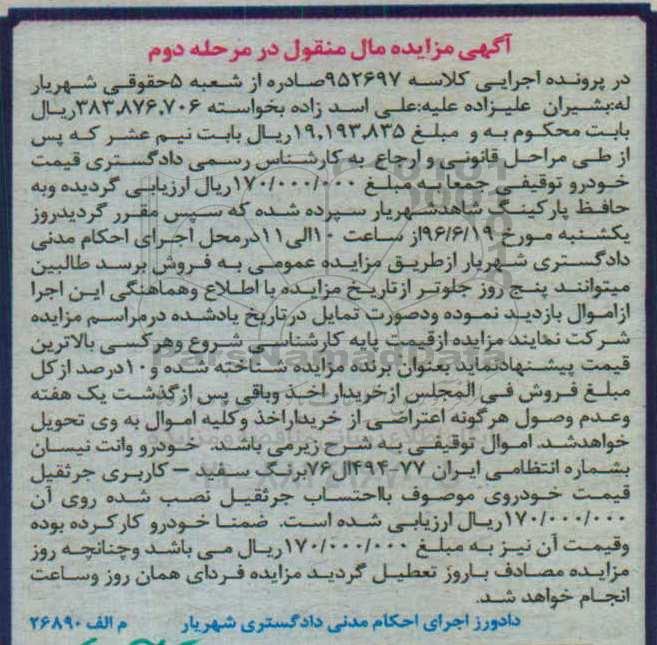 آگهی مزایده مال منقول در مرحله دوم
در پرونده اجرایی کلاسه ۹۵۲۶۹۷صادره از شعبه ۵حقوقی شهریار
له:بشیران علیزاده علیه:علی اسد زاده بخواسته ۳۸۳،۸۷۶،۷۰۶ریال
بابت محکوم به و مبلغ ۱۹،۱۹۳،۸۳۵ریال بابت نیم عشر که پس
از طی مراحل قانونی و ارجاع به کارشناس رسمی دادگستری قیمت
خودرو توقیفی جمعا به مبلغ ۱۷۰/۰۰۰/۰۰۰ریال ارزیابی گردیده وبه
حافظ پارکینگ شاهدشهریار سپرده شده که سپس مقرر گردیدروز
یکشنبه مورخ ۹۶/۶/۱۹از ساعت ۱۰الی۱۱درمحل اجرای احکام مدنی
دادگستری شهریار ازطریق مزایده عمومی به فروش برسد طالبین
میتوانند پنج روز جلوتر ازتاریخ مزایده با اطلاع وهماهنگی این اجرا
ازاموال بازدید نموده ودصورت تمایل درتاریخ یادشده درمراسم مزایده
شرکت نمایند مزایده ازقیمت پایه کارشناسی شروع وهرکسی بالاترین
قیمت پیشنهادنماید بعنوان برنده مزایده شناخته شده و۱۰درصد ازکل
مبلغ فروش فی المجلس ازخریدار اخذ وباقی پس ازگذشت یک هفته
وعدم وصول هرگونه اعتراضی از خریداراخذ وکلیه اموال به وی تحویل
خواهدشد. اموال توقیفی به شرح زیرمی باشد: خودرو وانت نیسان
بشماره انتظامی ایران ۷۷-۴۹۴ال۷۶برنگ سفید – کاربری جرثقیل
قیمت خودروی موصوف بااحتساب جرثقیل نصب شده روی آن
۱۷۰/۰۰۰/۰۰۰ریال ارزیابی شده است. ضمنا خودرو کارکرده بوده
وقیمت آن نیز به مبلغ ۱۷۰/۰۰۰/۰۰۰ریال می باشد وچنانچه روز
مزایده مصادف باروز تعطیل گردید مزایده فردای همان روز وساعت
انجام خواهد شد.
دادورز اجرای احکام مدنی دادگستری شهریار م الف ۲۶۸۹۰
ParsNamadData